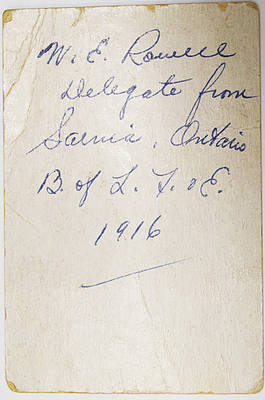 W. E. Rowell
Delegate from
Sarnia, Ontario
B. of L. F. & E.
1916